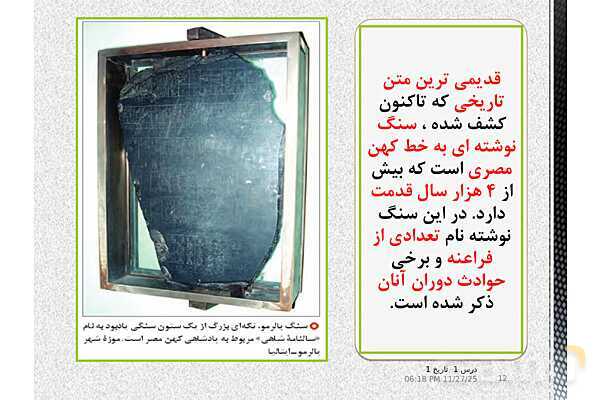 قدیمی ترین متن
تاریخی که تاکنون
کشف شده ، سنگ
نوشته ای به خط کهن
مصری است که بیش
از ۴ هزار سال قدمت
دارد. در این سنگ
نوشته نام تعدادی از
فراعنه و برخی
حوادث دوران آنان
ذکر شده است.
سنگ پالرمو، تکه‌ای بزرگ از یک ستون سنگی یادبود به نام
«سالنامهٔ شاهی» مربوط به پادشاهی کهن مصر است. موزهٔ شهر
پالرمو-ایتالیا
درس 1 تاریخ 1
06:18 PM 11/27/25
12